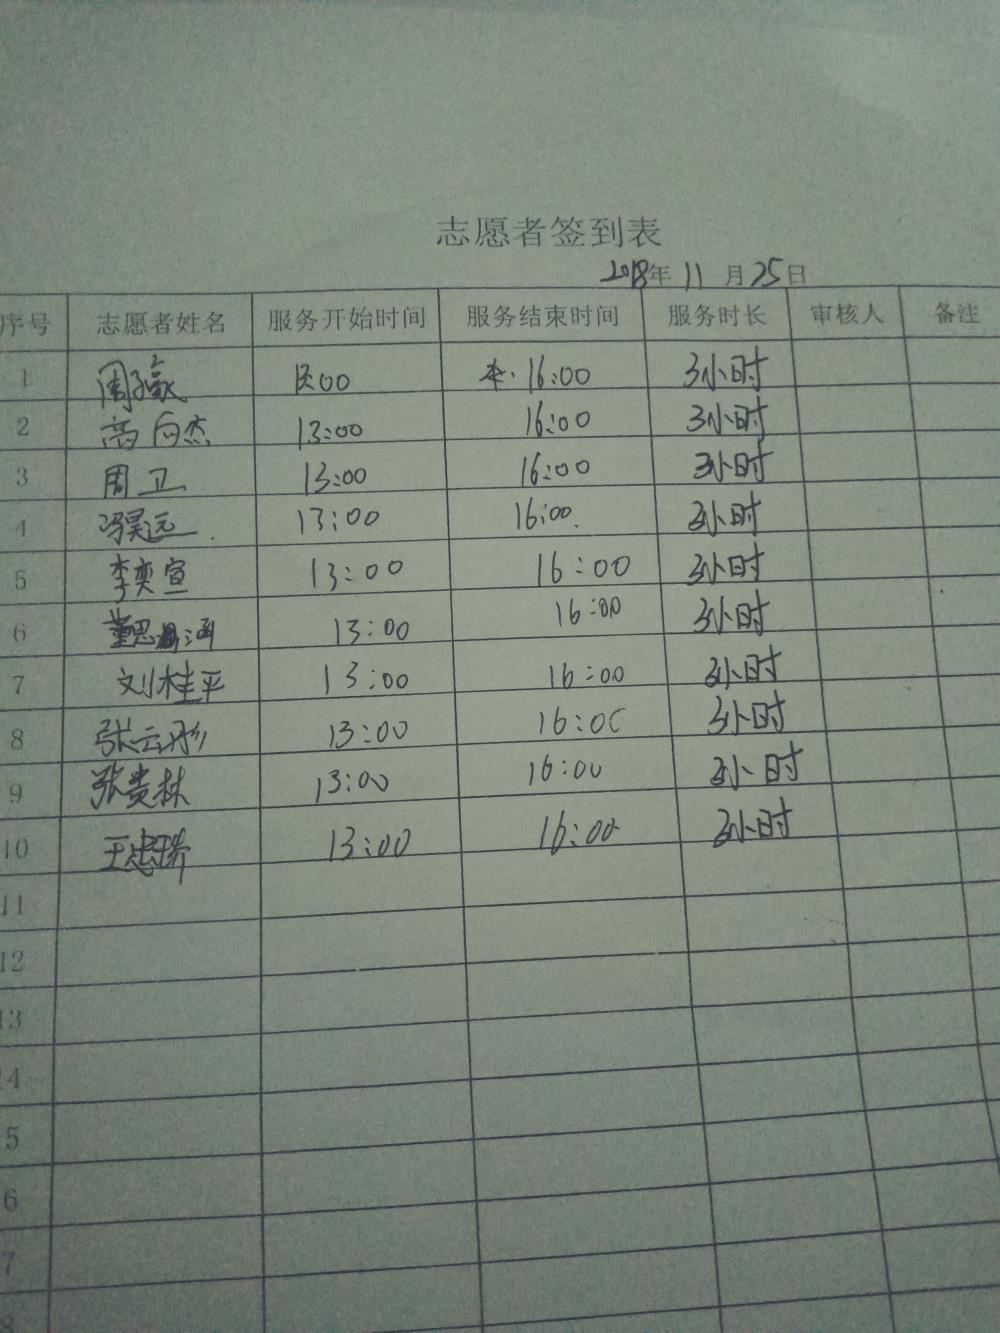 志愿者签到表
2018年 11 月 25日
序号 志愿者姓名 服务开始时间 服务结束时间 服务时长 审核人 备注
1 周 16:00 3小时
2 高向杰 13:00 16:00 3小时
3 周卫 13:00 16:00 3小时
4 冯昊远 13:00 16:00 3小时
5 李奕宣 13:00 16:00 3小时
6 董思涵 13:00 16:00 3小时
7 刘桂平 13:00 16:00 3小时
8 张云彤 13:00 16:00 3小时
9 张贵林 13:00 16:00 3小时
10 王忠 13:00 16:00 3小时
11
12
13
14
5
6
7
8